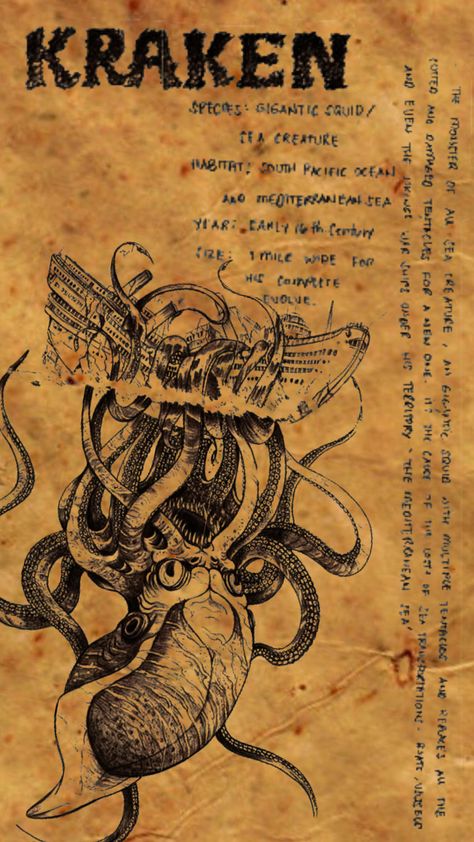 KRAKEN
SPECIES: GIGANTIC SQUID/
SEA CREATURE
HABITAT: SOUTH PACIFIC OCEAN
AND MEDITERRANEAN SEA
YEAR: EARLY 16th Century
SIZE: 1 MILE WIDE FOR
HIS COMPLETE
EVOLVE.
THE MONSTER OF ALL SEA CREATURE, AN GIGANTIC SQUID WITH MULTIPLE TENTACLES AND REPLACES ALL THE
CUTTED AND DAMAGED TENTACLES FOR A NEW ONE. IT'S THE CAUSE OF THE LOSS OF SEA TRANSPORTATIONS. BOATS,
AND EVEN THE VIKINGS WAR SHIPS UNDER HIS TERRITORY "THE MEDITERRANEAN SEA"